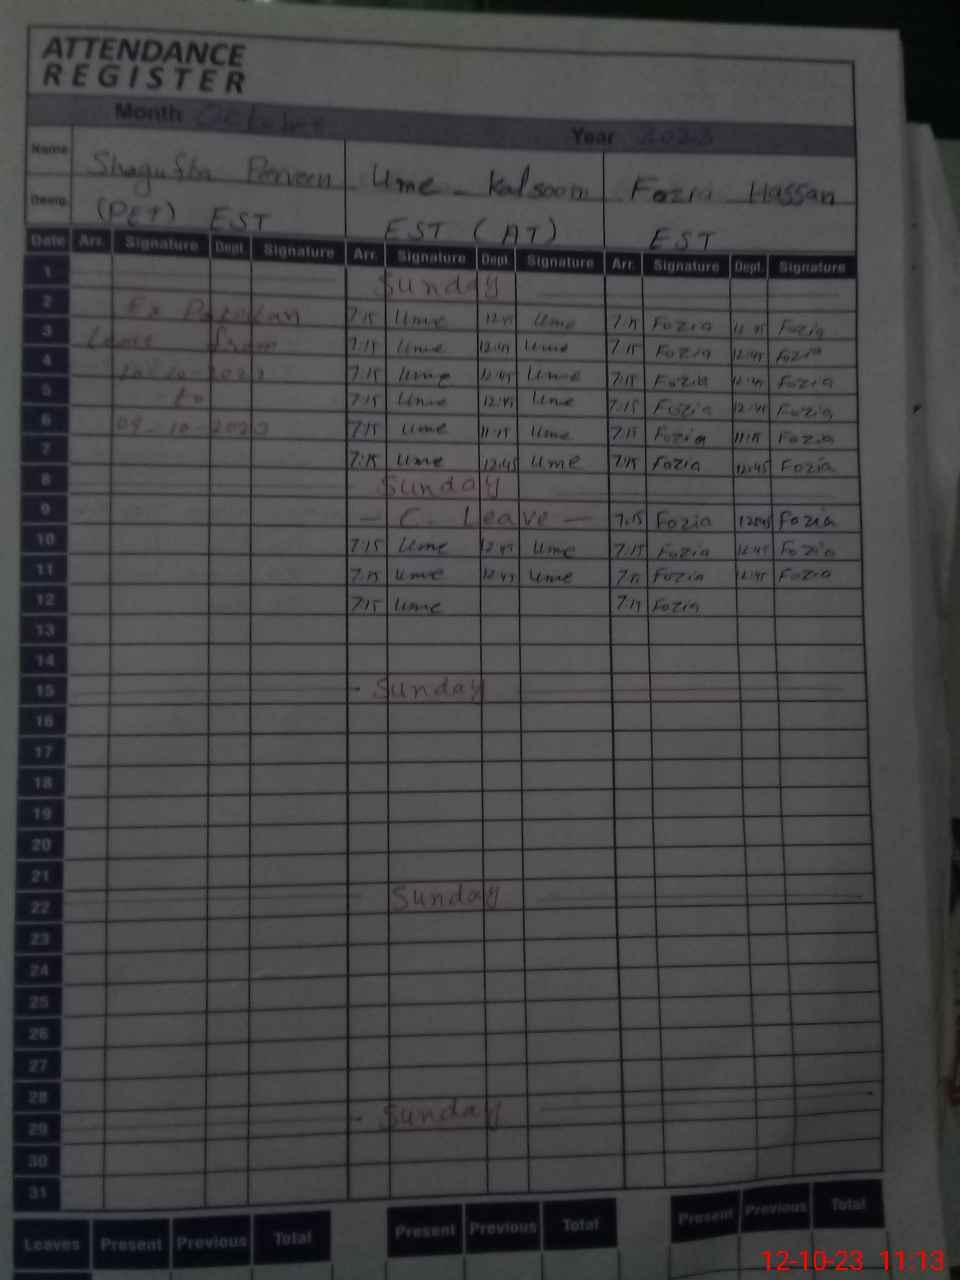 ATTENDANCE
REGISTER
Month October Year 2023
Name Shagufta Perveen Ume - Kalsoom Fozia Hassan
Desig. (PET) EST EST (AT) EST
Date Arr. Signature Dept. Signature Arr. Signature Dept. Signature Arr. Signature Dept. Signature
1 Sunday
2 Ex Pakistan 7:15 Ume 12:45 Ume 7:15 Fozia 12:45 Fozia
3 Leave from 7:15 Ume 12:45 Ume 7:15 Fozia 12:45 Fozia
4 7:15 Ume 12:45 Ume 7:15 Fozia 12:45 Fozia
5 to 7:15 Ume 12:45 Ume 7:15 Fozia 12:45 Fozia
6 09-10-2023 7:15 Ume 11:15 Ume 7:15 Fozia 11:15 Fozia
7 7:15 Ume 12:45 Ume 7:15 Fozia 12:45 Fozia
8 Sunday
9 - C. Leave - 7:15 Fozia 12:45 Fozia
10 7:15 Ume 12:45 Ume 7:15 Fozia 12:45 Fozia
11 7:15 Ume 12:45 Ume 7:15 Fozia 12:45 Fozia
12 7:15 Ume 7:15 Fozia
13
14
15 - Sunday
16
17
18
19
20
21
22 Sunday
23
24
25
26
27
28
29 - Sunday
30
31
Leaves Present Previous Total Present Previous Total Present Previous Total
12-10-23 11:13